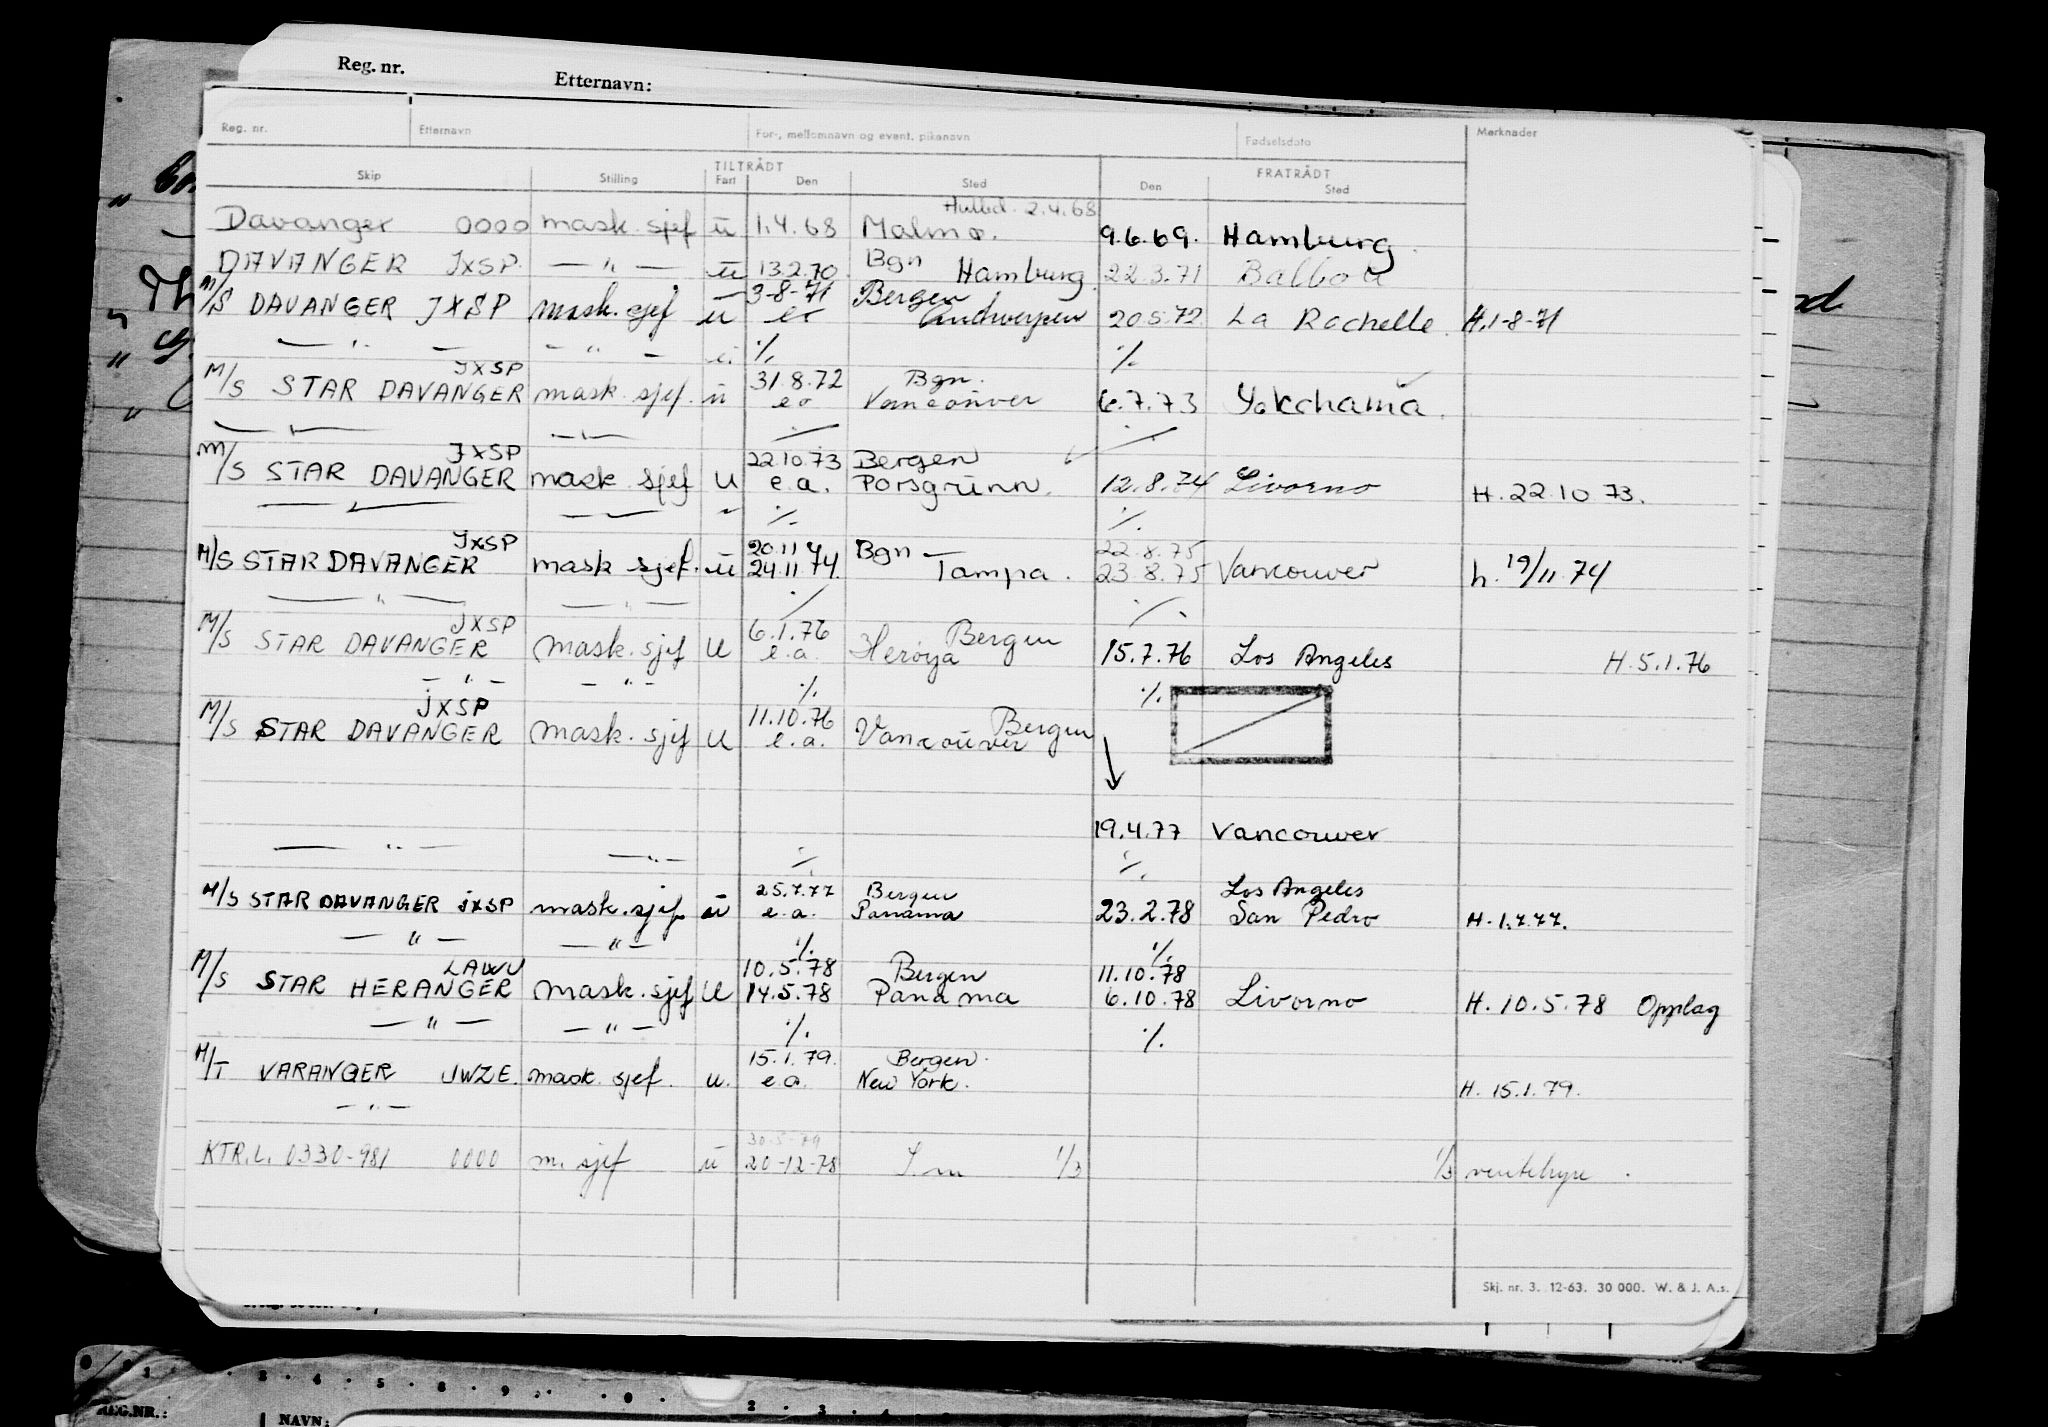 Reg. nr. Etternavn:
Reg. nr. Etternavn For-, mellomnavn og event. pikenavn Fødselsdato Merknader
TILTRÅDT FRATRÅDT
Skip Stilling Fart Den Sted Den Sted
2.4.68
Davanger 0000 mask. sjef ü 1.4.68 Malmø. 9.6.69. Hamburg.
DAVANGER JXSP. — " — ü 13.2.70. Bgn Hamburg. 22.3.71 Balboa
3-8-71 Bergen
M/S DAVANGER JXSP mask. sjef ü eo Antwerpen 20.5.72 La Rochelle. H.1-8-71
— " — — " — ü ·/. ·/.
JXSP 31.8.72 Bgn.
M/S STAR DAVANGER mask. sjef. ü eo Vancouver 6.7.73 Yokohama.
JXSP 22.10.73 Bergen
M/S STAR DAVANGER mask sjef u e.a. Porsgrunn. 12.8.74 Livorno H. 22.10 73.
·/. ·/.
JXSP 20.11 Bgn — 22.8.75
M/S STAR DAVANGER mask sjef. ü 24.11.74. Tampa. 23.8.75 Vancouver h. 19/11.74
— " — — " — ·/. ·/.
JXSP 6.1.76 Bergen
M/S STAR DAVANGER mask. sjef u e.a. Herøya 15.7.76 Los Angeles H.5.1.76
— " — — " — ·/. ·/.
JXSP 11.10.76 Bergen
M/S STAR DAVANGER mask. sjef u e.a. Vancouver
19.4.77 Vancouver
— " — — " — ·/. ·/.
25.7.77 Bergen Los Angeles
M/S STAR DAVANGER JXSP mask. sjef ü e.a. Panama 23.2.78 San Pedro H.1.7.77.
— " — — " — ·/. ·/.
LAWU 10.5.78 Bergen 11.10.78
M/S STAR HERANGER mask. sjef u 14.5.78 Panama 6.10.78 Livorno H. 10.5.78 Opplag
— " — — " — ·/. ·/.
15.1.79. Bergen.
M/T VARANGER JWZE. mask. sjef. u. e.a. New York. H. 15.1.79.
— " —
30.5-79
KTR.L. 0330-981 0000 m. sjef ü 20-12-78 1/3 1/3 ventehyre.
Skj. nr. 3. 12-63. 30 000. W. & J. A.s.
1 3 4 5 8 9 0 2 3 4
REG.NR.: NAVN: